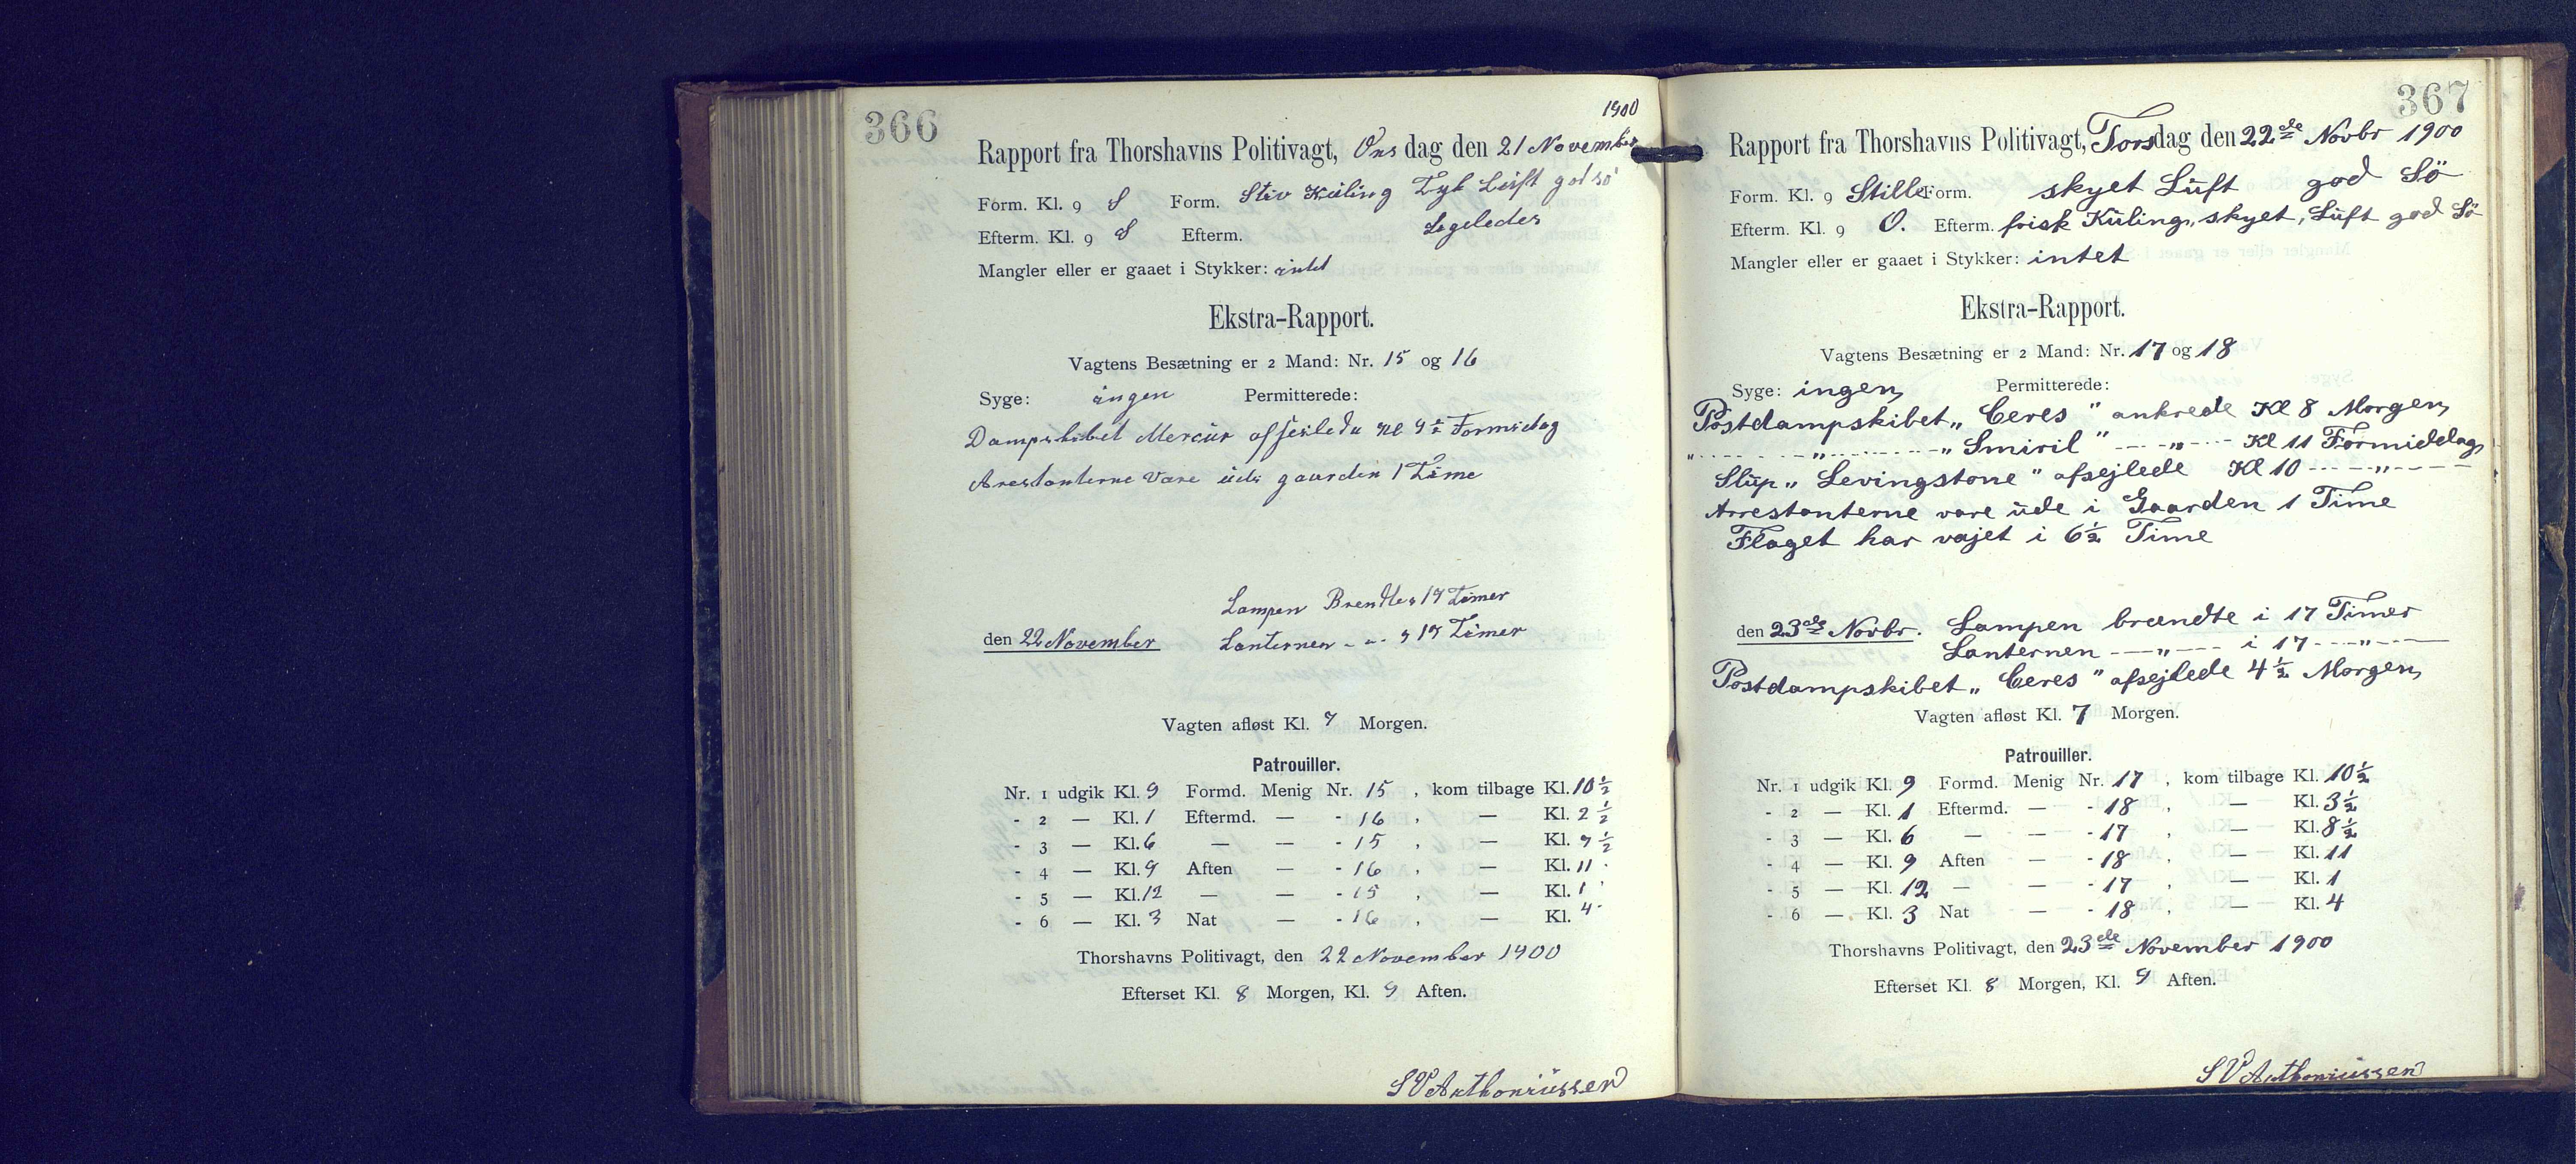 366
1900
Rapport fra Thorshavns Politivagt, Onsdag den 21 November
Form. Kl. 9 S Form. Stiv Kuling Tyk Luft god sö
Efterm. Kl. 9 S Efterm. Legeledes
Mangler eller er gaaet i Stykker: intet
Ekstra-Rapport.
Vagtens Besætning er 2 Mand: Nr. 15 og 16
Syge: ingen Permitterede:
Dampskibet Mercur afseilede Kl 9½ Formidag
Arestanterne vare ude gaarden 1 Time
Lampen Brendte 17 Timer
den 22 November Lanternen - " - 17 Timer
Vagten afløst Kl. 7 Morgen.
Patrouiller.
Nr. 1 udgik Kl. 9 Formd. Menig Nr. 15, kom tilbage Kl. 10½
- 2 — Kl. 1 Eftermd. — - 16, — Kl. 2½
- 3 — Kl. 6 — — - 15, — Kl. 7½
- 4 — Kl. 9 Aften — - 16, — Kl. 11
- 5 — Kl. 12 — — - 15, — Kl. 1
- 6 — Kl. 3 Nat — - 16, — Kl. 4
Thorshavns Politivagt, den 22 November 1900
Efterset Kl. 8 Morgen, Kl. 9 Aften.
SVAnthoniussen
367
Rapport fra Thorshavns Politivagt, Torsdag den 22de Novbr 1900
Form. Kl. 9 Stille Form. skyet Luft god Sö
Efterm. Kl. 9 O. Efterm. frisk Kuling, skyet, Luft god Sö
Mangler eller er gaaet i Stykker: intet
Ekstra-Rapport.
Vagtens Besætning er 2 Mand: Nr. 17 og 18
Syge: ingen Permitterede:
Postdampskibet „Ceres" ankrede Kl 8 Morgen
" --- " --- „Smiril" --- " --- Kl 11 Formiddag
Slup „Levingstone" afsejlede Kl 10 --- " ---
Arrestanterne vare ude i Gaarden 1 Time
Flaget har vajet i 6½ Time
den 23de Novbr. Lampen brændte i 17 Timer
Lanternen --- " --- i 17 --- " ---
Postdampskibet „Ceres" afsejlede 4½ Morgen
Vagten afløst Kl. 7 Morgen.
Patrouiller.
Nr. 1 udgik Kl. 9 Formd. Menig Nr. 17, kom tilbage Kl. 10½
- 2 — Kl. 1 Eftermd. — - 18, — Kl. 3½
- 3 — Kl. 6 — — - 17, — Kl. 8½
- 4 — Kl. 9 Aften — - 18, — Kl. 11
- 5 — Kl. 12 — — - 17, — Kl. 1
- 6 — Kl. 3 Nat — - 18, — Kl. 4
Thorshavns Politivagt, den 23de November 1900
Efterset Kl. 8 Morgen, Kl. 9 Aften.
SVAnthoniussen